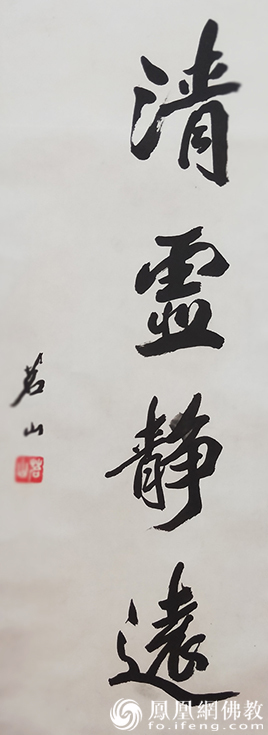 清霊静遠
茗山
茗山
鳳凰網佛教
fo.ifeng.com